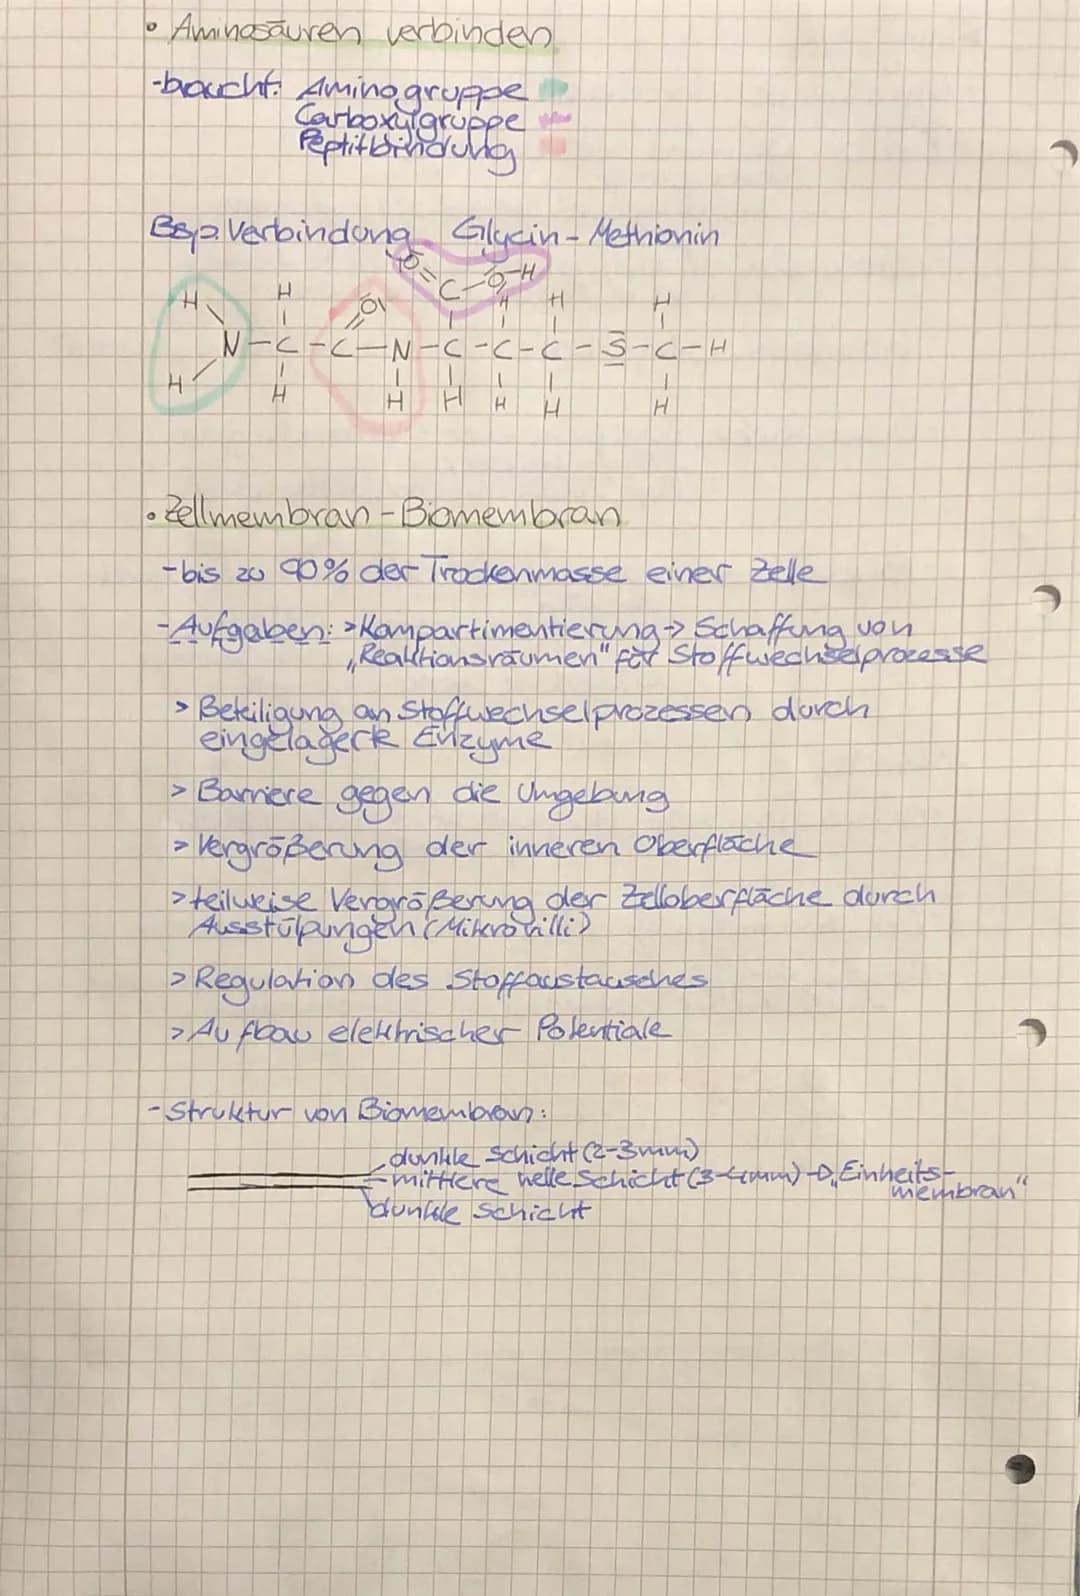 • Aminosäuren verbinden
-braucht: Aminogruppe
Carboxylgruppe
Peptitbindung
Bsp. Verbindung Glycin - Methionin
O=C-O-H
H H H H H
O
N-C-C-N-C-C-C-S-C-H
H
H H H H H H
• Zellmembran - Biomembran
- bis zu 90% der Trockenmasse einer Zelle
- Aufgaben: > Kompartimentierung → Schaffung von
„Reaktionsräumen" für Stoffwechselprozesse
> Beteiligung an Stoffwechselprozessen durch
eingelagerte Enzyme
> Barriere gegen die Umgebung
> Vergrößerung der inneren Oberfläche
> teilweise Vergrößerung der Zelloberfläche durch
Ausstülpungen (Mikrovilli)
> Regulation des Stoffaustausches
> Aufbau elektrischer Potentiale
- Struktur von Biomembran:
dunkle Schicht (2-3mm)
mittlere helle Schicht (3-4mm) → „Einheits-
membran"
dunkle Schicht